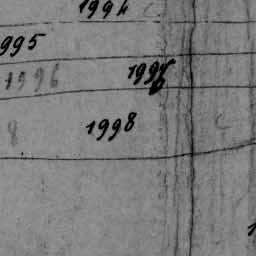 1994
995
1996 1997
8 1998
1